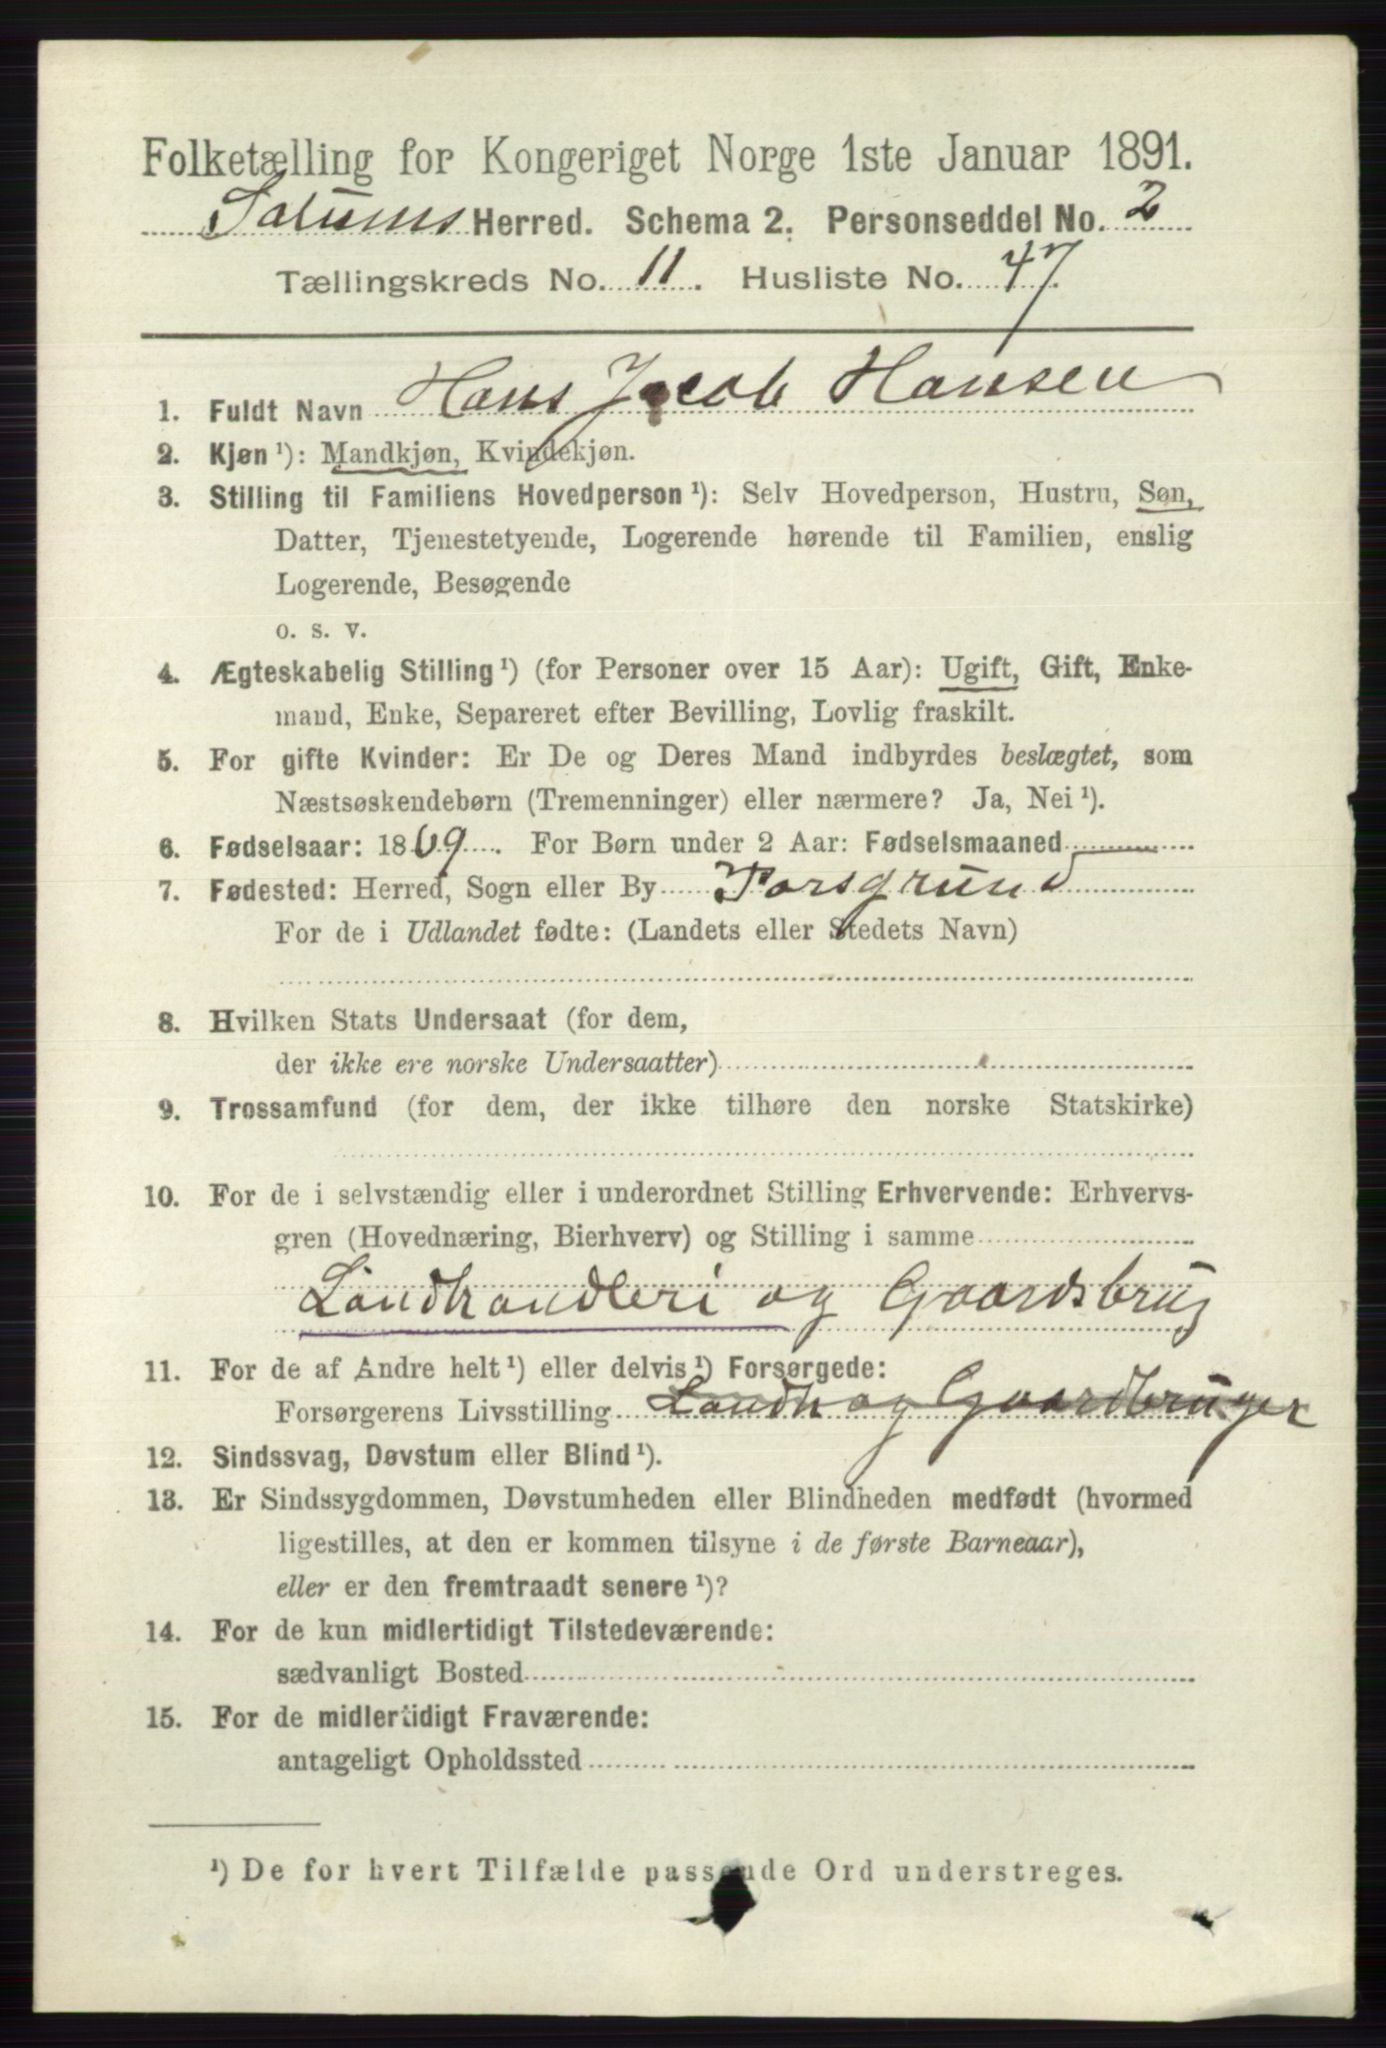 Folketælling for Kongeriget Norge 1ste Januar 1891.
Solums Herred. Schema 2. Personseddel No. 2
Tællingskreds No. 11. Husliste No. 47
1. Fuldt Navn Hans Jacob Hansen
2. Kjøn ¹): Mandkjøn, Kvindekjøn.
3. Stilling til Familiens Hovedperson ¹): Selv Hovedperson, Hustru, Søn,
Datter, Tjenestetyende, Logerende hørende til Familien, enslig
Logerende, Besøgende
o. s. v.
4. Ægteskabelig Stilling ¹) (for Personer over 15 Aar): Ugift, Gift, Enke-
mand, Enke, Separeret efter Bevilling, Lovlig fraskilt.
5. For gifte Kvinder: Er De og Deres Mand indbyrdes beslægtet, som
Næstsøskendebørn (Tremenninger) eller nærmere? Ja, Nei ¹).
6. Fødselsaar: 1869. For Børn under 2 Aar: Fødselsmaaned
7. Fødested: Herred, Sogn eller By Porsgrund
For de i Udlandet fødte: (Landets eller Stedets Navn)
8. Hvilken Stats Undersaat (for dem,
der ikke ere norske Undersaatter)
9. Trossamfund (for dem, der ikke tilhøre den norske Statskirke)
10. For de i selvstændig eller i underordnet Stilling Erhvervende: Erhvervs-
gren (Hovednæring, Bierhverv) og Stilling i samme
Landhandleri og Gaardsbrug
11. For de af Andre helt ¹) eller delvis ¹) Forsørgede:
Forsørgerens Livsstilling Landh og Gaardbruger
12. Sindssvag, Døvstum eller Blind ¹).
13. Er Sindssygdommen, Døvstumheden eller Blindheden medfødt (hvormed
ligestilles, at den er kommen tilsyne i de første Barneaar),
eller er den fremtraadt senere ¹)?
14. For de kun midlertidigt Tilstedeværende:
sædvanligt Bosted
15. For de midlertidigt Fraværende:
antageligt Opholdssted
¹) De for hvert Tilfælde passende Ord understreges.